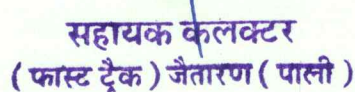 सहायक कलक्टर
( फास्ट ट्रैक ) जैतारण ( पाली )